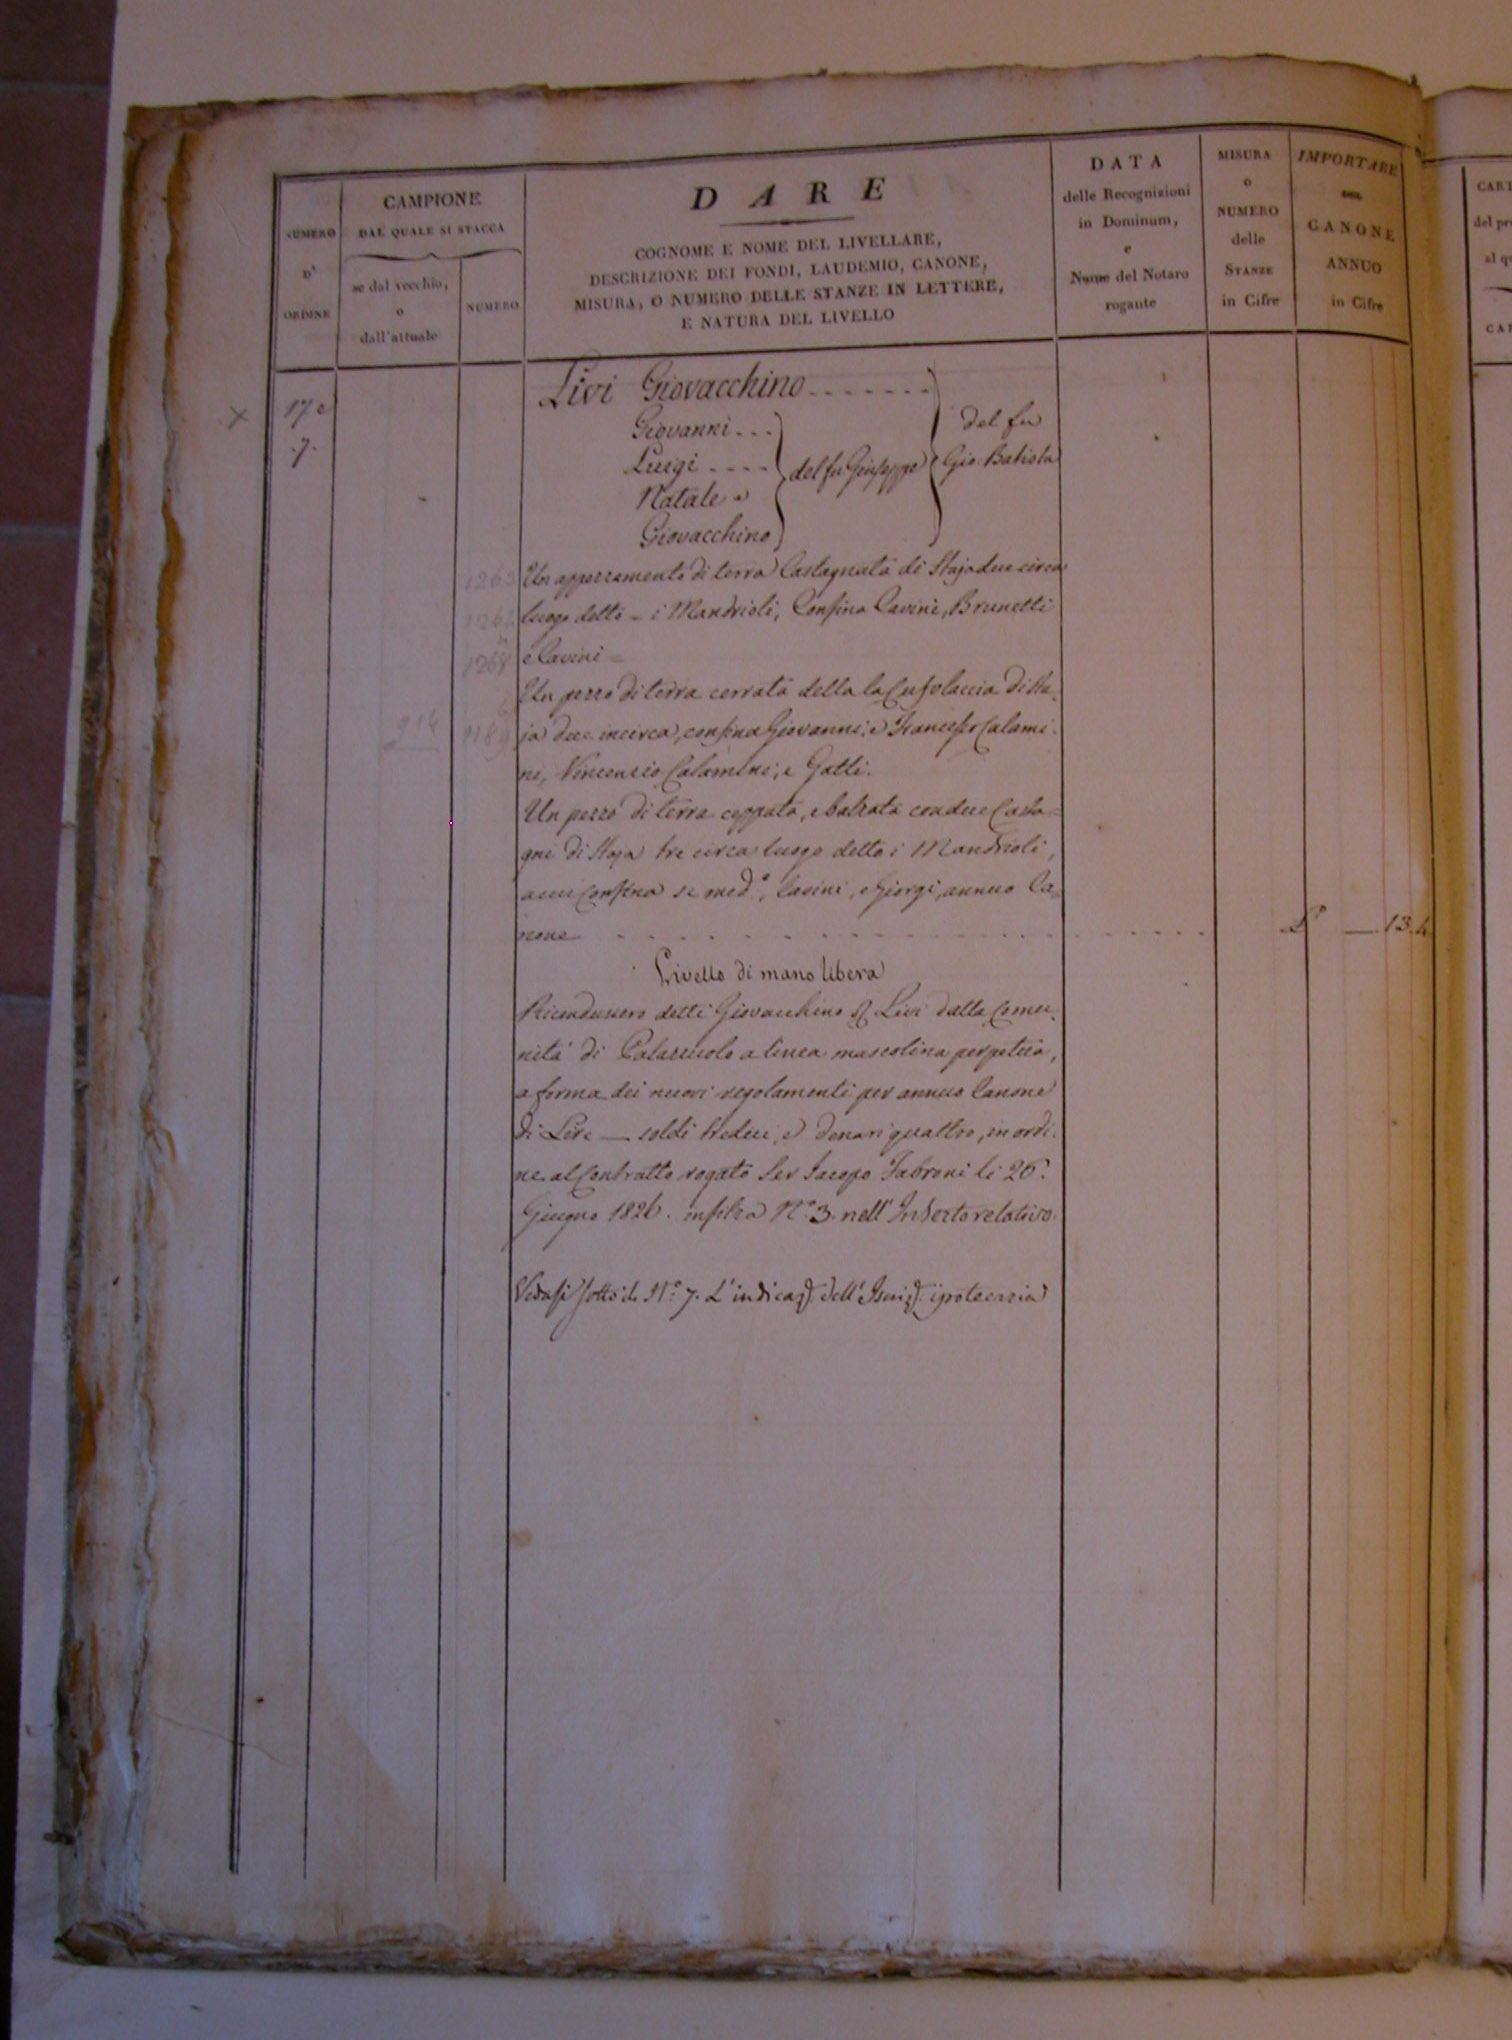 NUMERO
D'
ORDINE
CAMPIONE
DAL QUALE SI STACCA
se dal vecchio,
o
dall'attuale
NUMERO
DARE
COGNOME E NOME DEL LIVELLARE,
DESCRIZIONE DEI FONDI, LAUDEMIO, CANONE,
MISURA, O NUMERO DELLE STANZE IN LETTERE,
E NATURA DEL LIVELLO
DATA
delle Recognizioni
in Dominum,
e
Nome del Notaro
rogante
MISURA
o
NUMERO
delle
STANZE
in Cifre
IMPORTARE
DEL
CANONE
ANNUO
in Cifre
7.
Livi Giovacchino
Giovanni
Luigi
Natale e
Giovacchino
del fu Giuseppe
del fu
Gio. Batista
Un appezzamento di terra Castagnata di Staja due circa
luogo detto - i Mandrioli, Confina Cavini, Brunetti
e Cavini =
Un pezzo di terra cerrata detta la di Sta-
ja due incirca, confina Giovanni, e Francesco Calami-
ni, Vincenzio Calamini, e Gatti.
Un pezzo di terra ceppata, e balzata con due Casta=
gni di Staja tre circa luogo detto i Mandrioli,
a cui Confina se med.º, e Giorgi, annuo Ca=
none
£ — 13.4
Livello di mano libera
Ricondussero detti Giovacchino & Livi dalla Comu-
nità di Palazzuolo a linea mascolina perpetua,
a forma dei nuovi regolamenti per annuo Canone
di Lire — soldi tredici, e denari quattro, in ordi-
ne al Contratto rogato Ser Jacopo Fabroni li 26.
Giugno 1826. in filza N.º 3. nell' Inserto relativo.
Vedasi sotto di N.º 7. L'indicaz. dell' Iscriz. ipotecaria